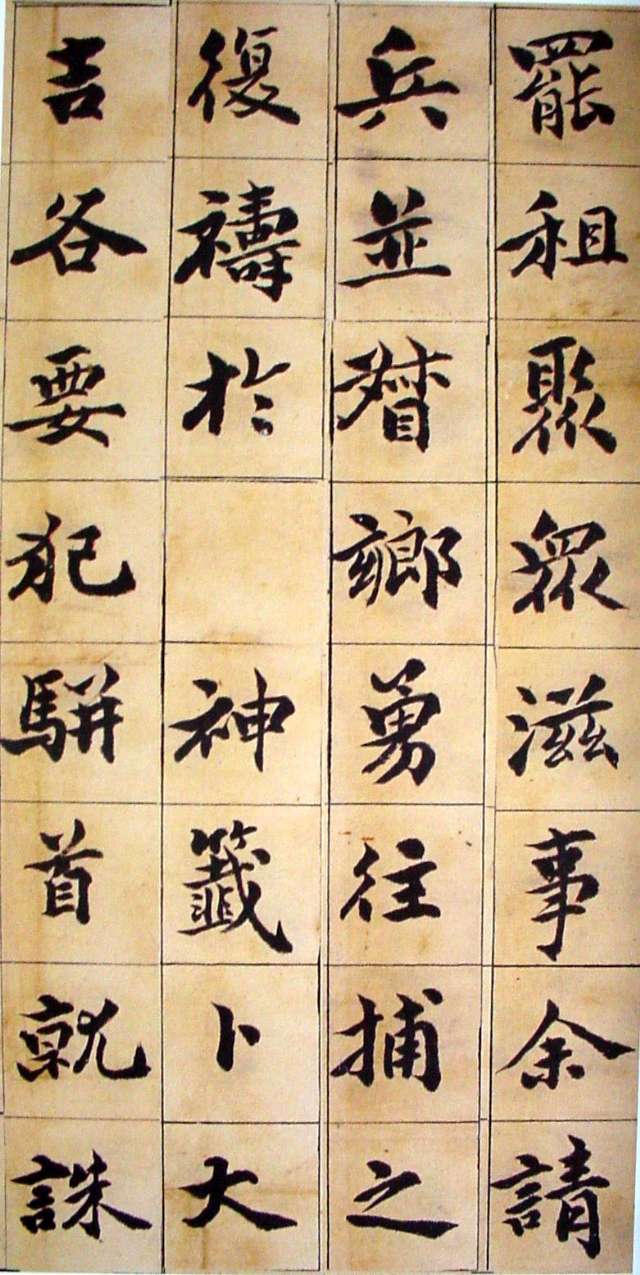 罷租聚眾滋事余請
兵並督鄉勇往捕之
復禱於 神籤卜大
吉各要犯駢首就誅